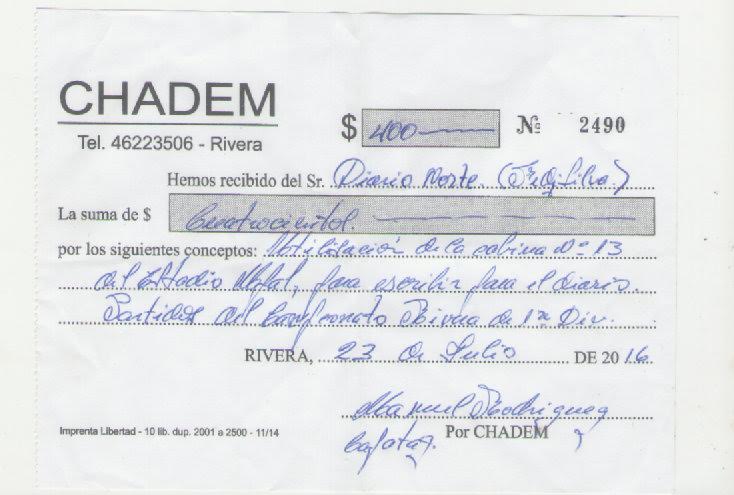 CHADEM
Tel. 46223506 - Rivera
$ 400 Nº 2490
Hemos recibido del Sr. Diario Norte. (Fr. Silva)
La suma de $ Cuatrocientos.
por los siguientes conceptos: Utilización de la cabina Nº 13
del Estadio, para escribir para el diario.
Partidos del Campeonato Rivera de 1ra Div.
RIVERA, 23 de Julio DE 2016
Manuel Rodriguez
Por CHADEM
Imprenta Libertad - 10 lib. dup. 2001 a 2500 - 11/14